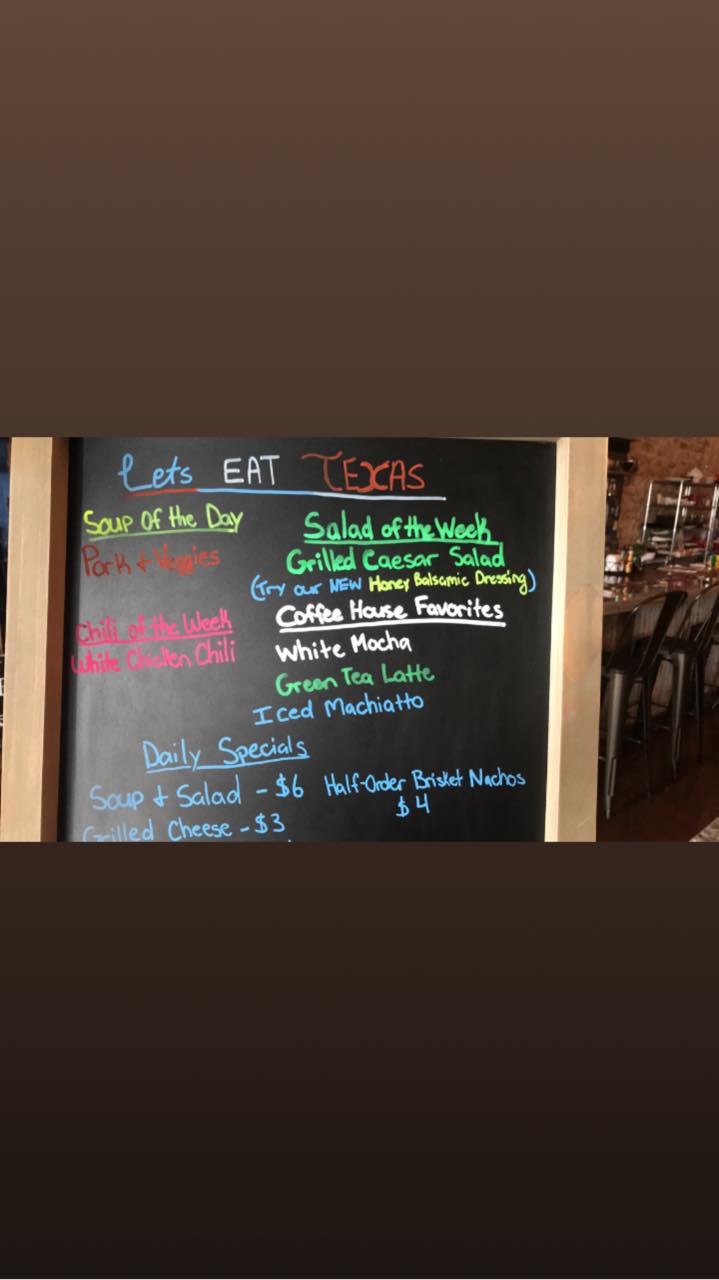 Lets EAT TEXAS
Soup Of the Day
Pork & Veggies
Chili of the Week
White Chicken Chili
Salad of the Week
Grilled Caesar Salad
(Try our NEW Honey Balsamic Dressing)
Coffee House Favorites
White Mocha
Green Tea Latte
Iced Machiatto
Daily Specials
Soup & Salad - $6
Grilled Cheese - $3
Half-Order Brisket Nachos
$4